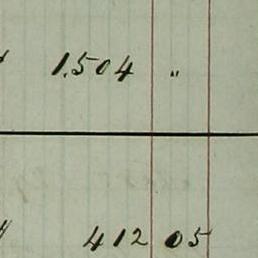 1.504 "
412 05